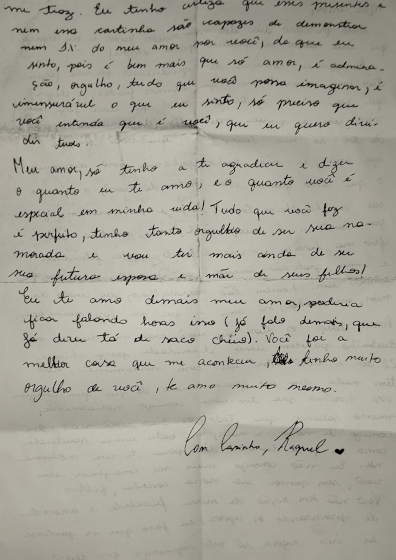 me traz. Eu tinho certeza que esses presentes e
nem essa cartinha são capazes de demonstrar
nem 5% do meu amor por você, do que eu
sinto, pois é bem mais que só amor, é admira-
ção, orgulho, tudo que você possa imaginar, é
imensurável o que eu sinto, só preciso que
você entenda que é você, que eu quero divi-
dir tudo.
Meu amor, só tenho a te agradecer e dizer
o quanto eu te amo, e o quanto você é
especial em minha vida! Tudo que você faz
é perfeito, tenho tanto orgulho de ser sua na-
morada e vou ter mais ainda de ser
sua futura esposa e mãe de seus filhos!
Eu te amo demais meu amor, poderia
ficar falando horas isso (já falo demais, que
já deve tá de saco cheio). Você foi a
melhor coisa que me aconteceu, tenho muito
orgulho de você, te amo muito mesmo.
Com Carinho, Raquel ♥